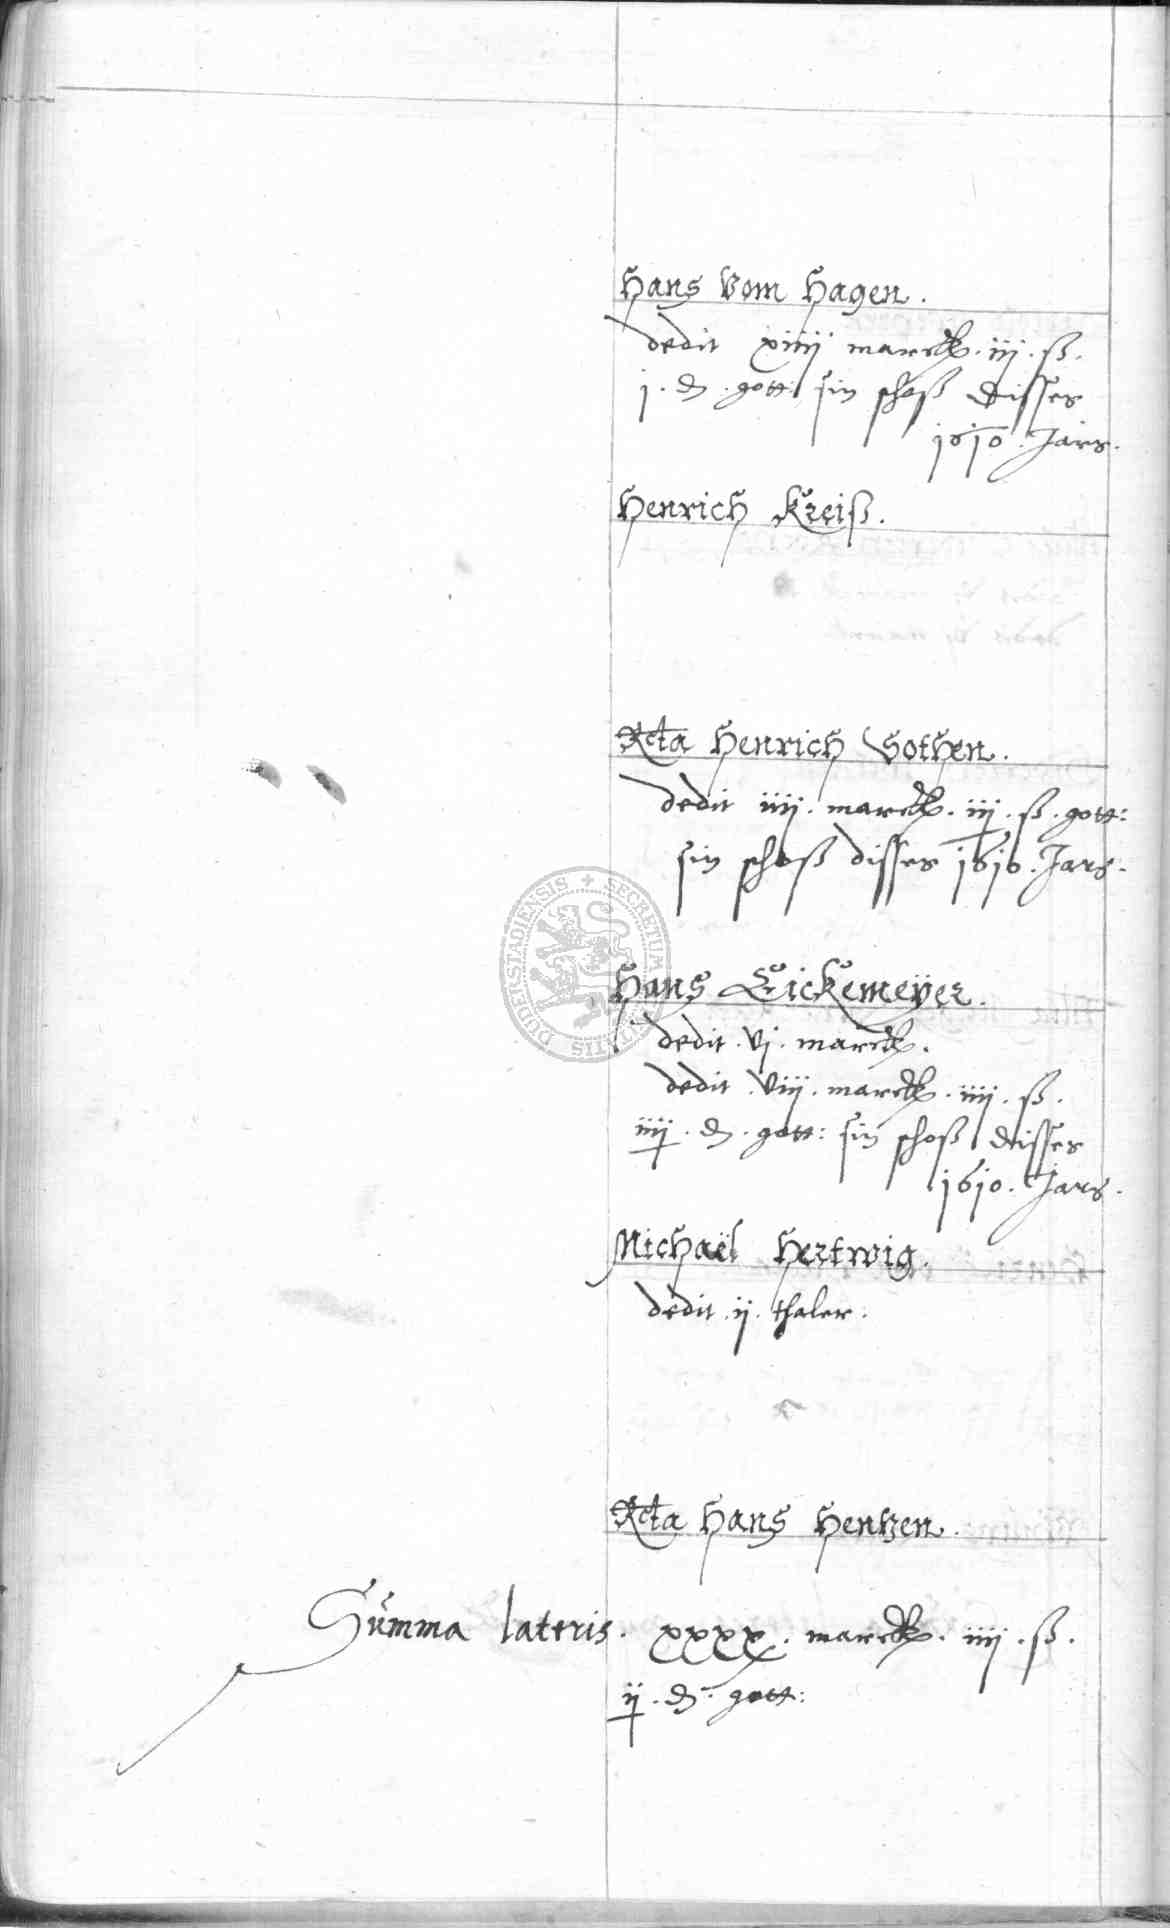 Hans Vom Hagen.
dedit xiiij marck. iij. ß.
j. ₰. gott: sin schoß disses
1610. Jars.
Henrich Kreiß.
Rcta Henrich Gothen.
dedit iiij. marck. iij. ß. gott:
sin schoß disses 1610. Jars.
Hans Eickemeÿer.
dedit. vj. marck.
dedit. viij. marck. iiij. ß.
iiij. ₰. gott: sin schoß disses
1610. Jars.
Michaël Hertwig.
dedit. ij. thaler.
Rcta Hans Henken.
Summa lateris. xxxx. marck. iiij. ß.
ij. ₰. gott:
SECRETUM DUDERSTADIENSIS